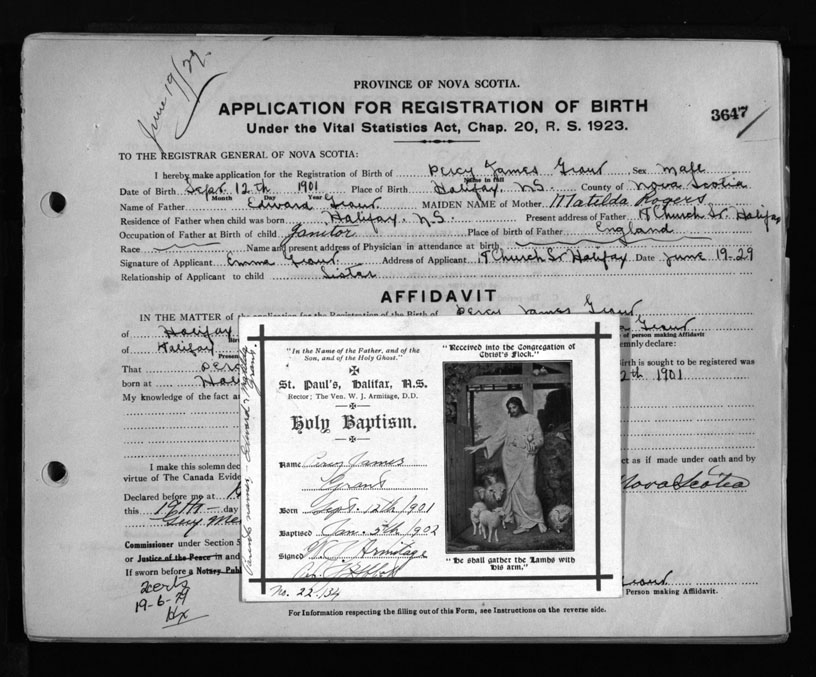 June 19/29.
PROVINCE OF NOVA SCOTIA.
APPLICATION FOR REGISTRATION OF BIRTH
3647
Under the Vital Statistics Act, Chap. 20, R. S. 1923.
TO THE REGISTRAR GENERAL OF NOVA SCOTIA:
I hereby make application for the Registration of Birth of Percy James Grant Sex Male
Name in full
Date of Birth Sept. 12th 1901 Place of Birth Halifax, N.S. County of Nova Scotia
Month Day Year
Name of Father Edward Grant MAIDEN NAME of Mother Matilda Rogers
Residence of Father when child was born Halifax, N.S. Present address of Father Church St. Halifax
Occupation of Father at Birth of child Janitor Place of birth of Father England
Race Name and present address of Physician in attendance at birth
Signature of Applicant Emma Grant Address of Applicant Church St Halifax Date June 19-29
Relationship of Applicant to child Sister
AFFIDAVIT
IN THE MATTER of the application for the Registration of the Birth of Percy James Grant
of Halifax Grant
of person making Affidavit
of Halifax solemnly declare:
That Percy Birth is sought to be registered was
born at 12th 1901
My knowledge of the fact
I make this solemn act as if made under oath and by
virtue of The Canada Nova Scotia
Declared before me at
this 19th day
Commissioner under Section
or Justice of the Peace in and
If sworn before a Notary
19-6-29
Hx
Grant
Person making Affidavit.
For Information respecting the filling out of this Form, see Instructions on the reverse side.
"In the Name of the Father, and of the
Son, and of the Holy Ghost."
St. Paul's, Halifax, N.S.
Rector; The Ven. W. J. Armitage, D.D.
Holy Baptism.
Name Percy James
Grant
Born Sept. 12th 1901
Baptised Jan. 5th 1902
Signed W J Armitage
No. 22/134
Parents names Edward &
Grant.
"Received into the Congregation of
Christ's Flock."
"He shall gather the Lambs with
His arm."